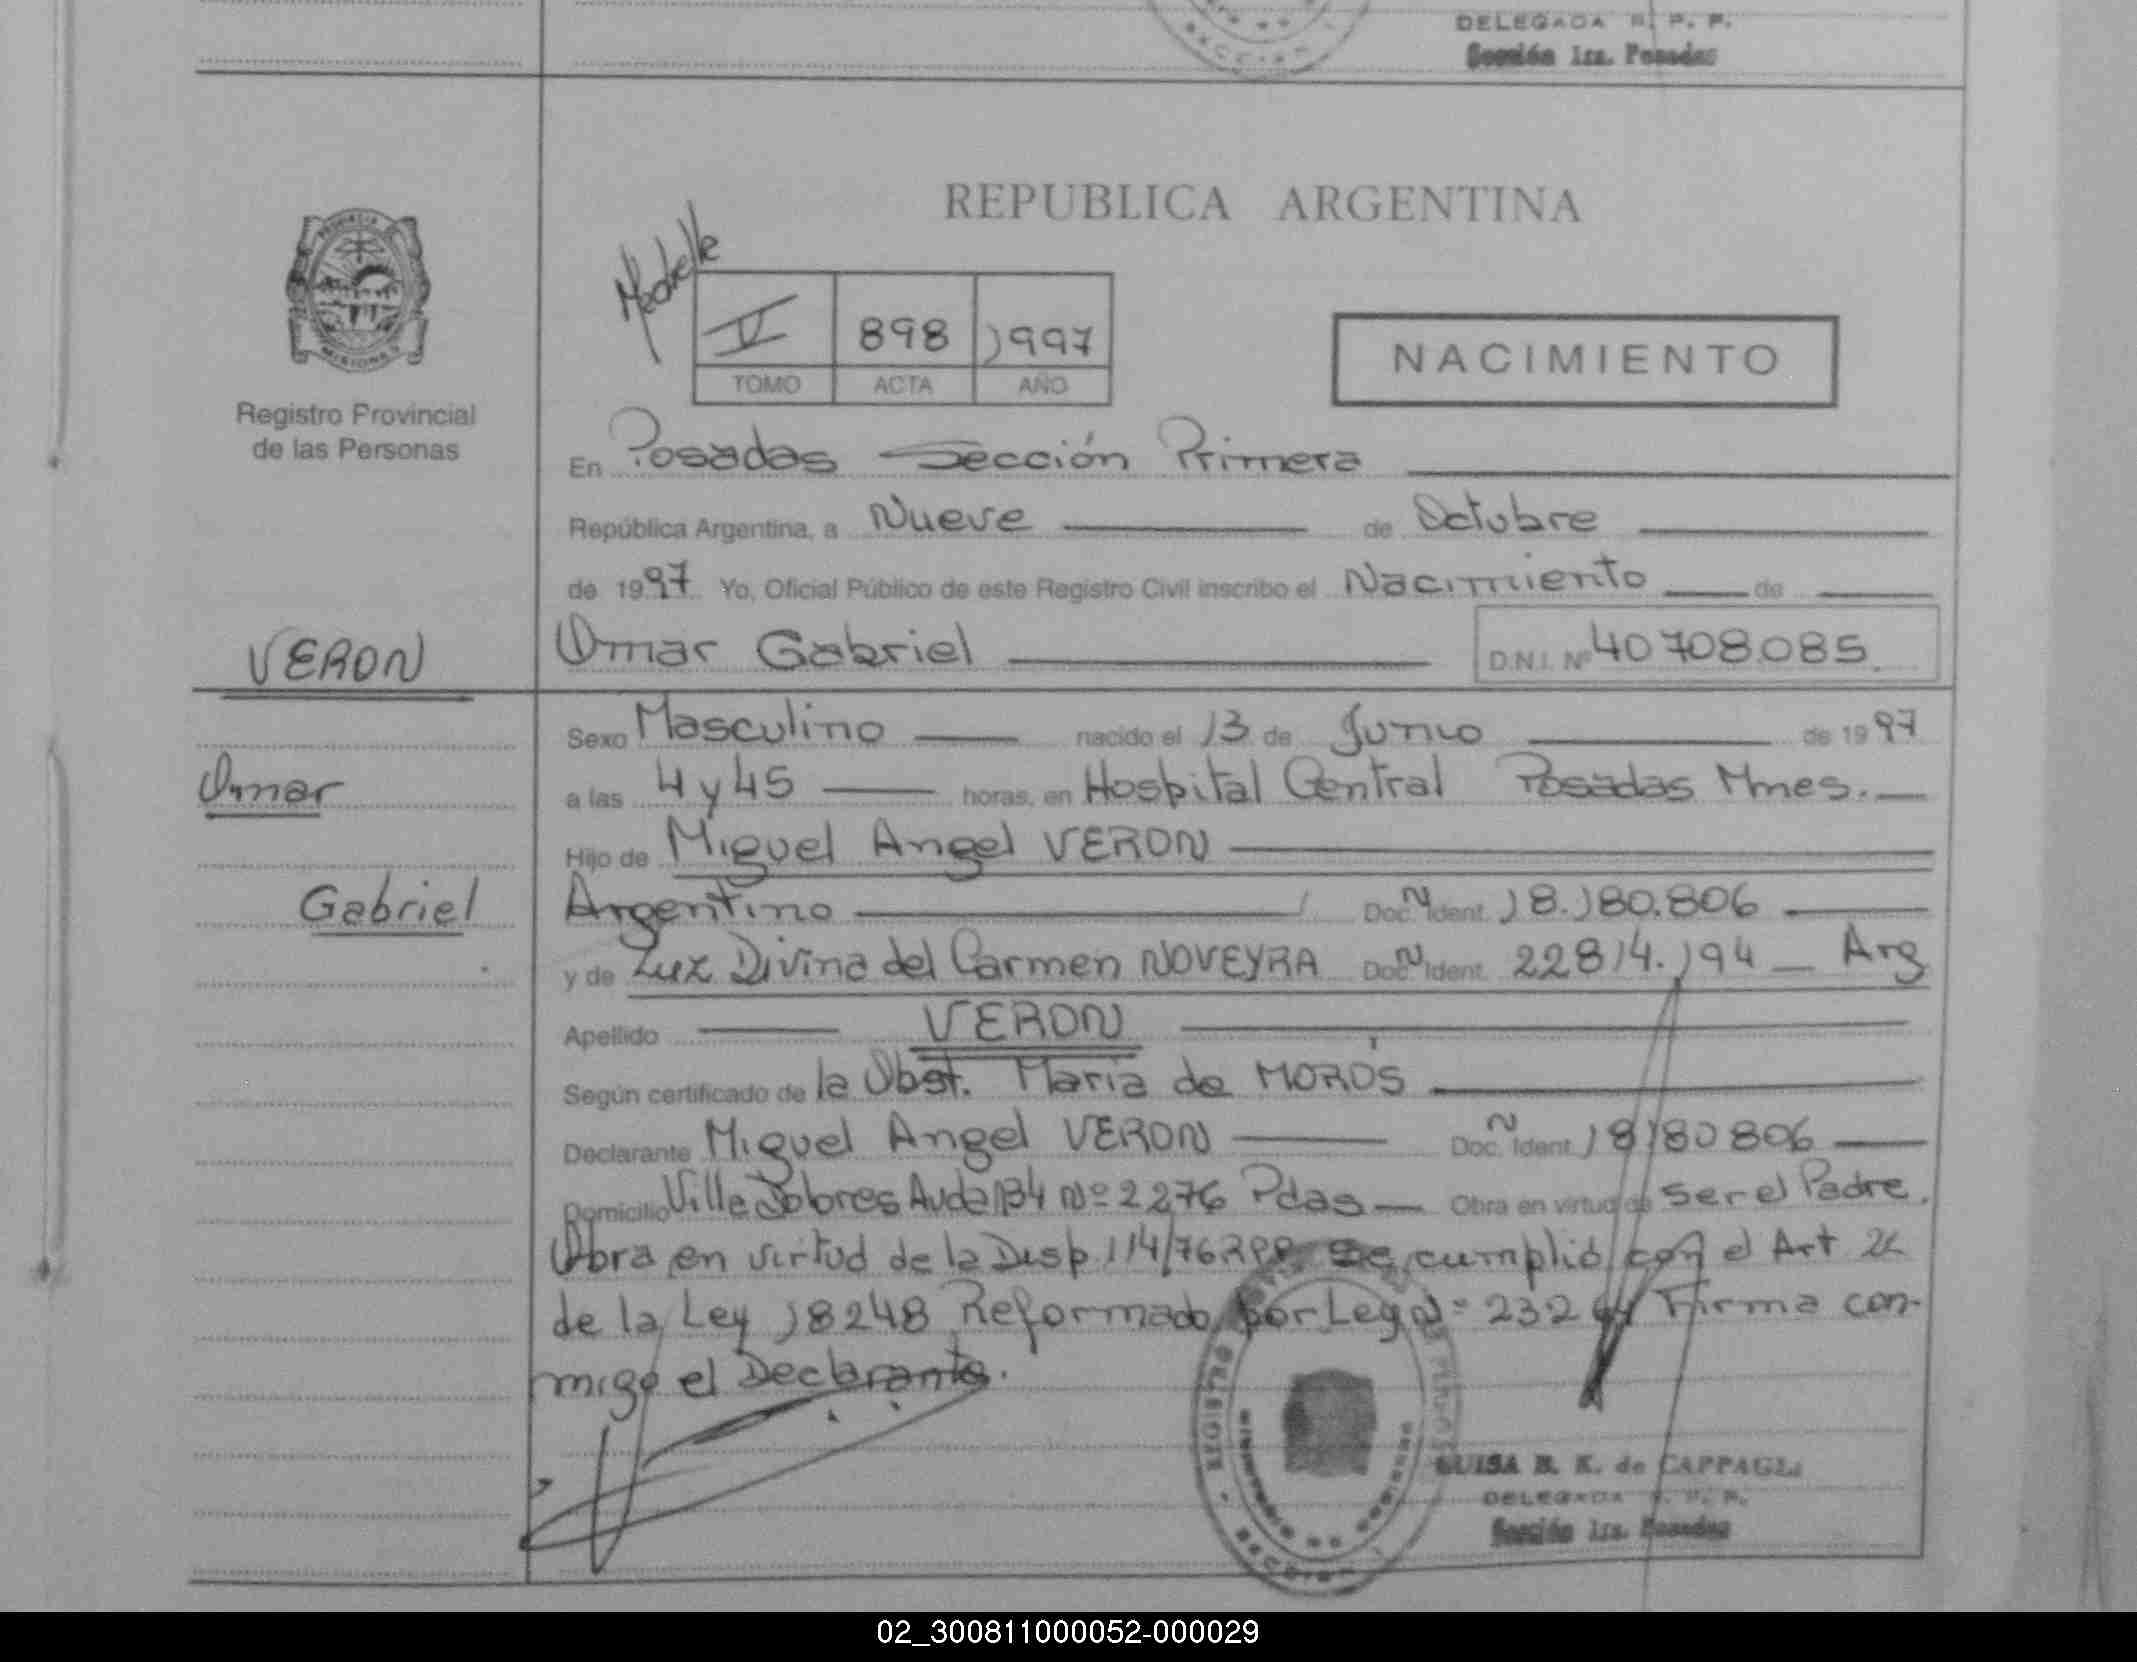 DELEGADA R. P. P.
Sección 1ra. Posadas
REPUBLICA ARGENTINA
V 898 1997
TOMO ACTA AÑO
NACIMIENTO
PROVINCIA
MISIONES
Registro Provincial
de las Personas
En Posadas Sección Primera
República Argentina, a Nueve de Octubre
de 1997 Yo, Oficial Público de este Registro Civil inscribo el Nacimiento de
VERON
Omar Gabriel D.N.I. Nº 40708085.
Sexo Masculino nacido el 13 de Junio de 1997
Omar
a las 4 y 45 horas, en Hospital Central Posadas Mnes.
Hijo de Miguel Angel VERON
Gabriel
Argentino Doc. N Ident. 18.180.806
y de Luz Divina del Carmen NOVEYRA Doc. N Ident. 22814.194 Arg
Apellido VERON
Según certificado de la Obst. Maria de MOROS
Declarante Miguel Angel VERON Doc. N Ident. 18180806
Domicilio Villa Dolores Avda 134 Nº 2276 Pdas Obra en virtud de ser el Padre.
Obra en virtud de la Disp 114/76 RPP Se cumplió con el Art
de la Ley 18248 Reformado por Ley Nº 232 Firma con-
migo el Declarante.
REGISTRO
SECCION 1
LUISA B. K. de CAPPAGLI
DELEGADA R. P. P.
Sección 1ra. Posadas
02_300811000052-000029